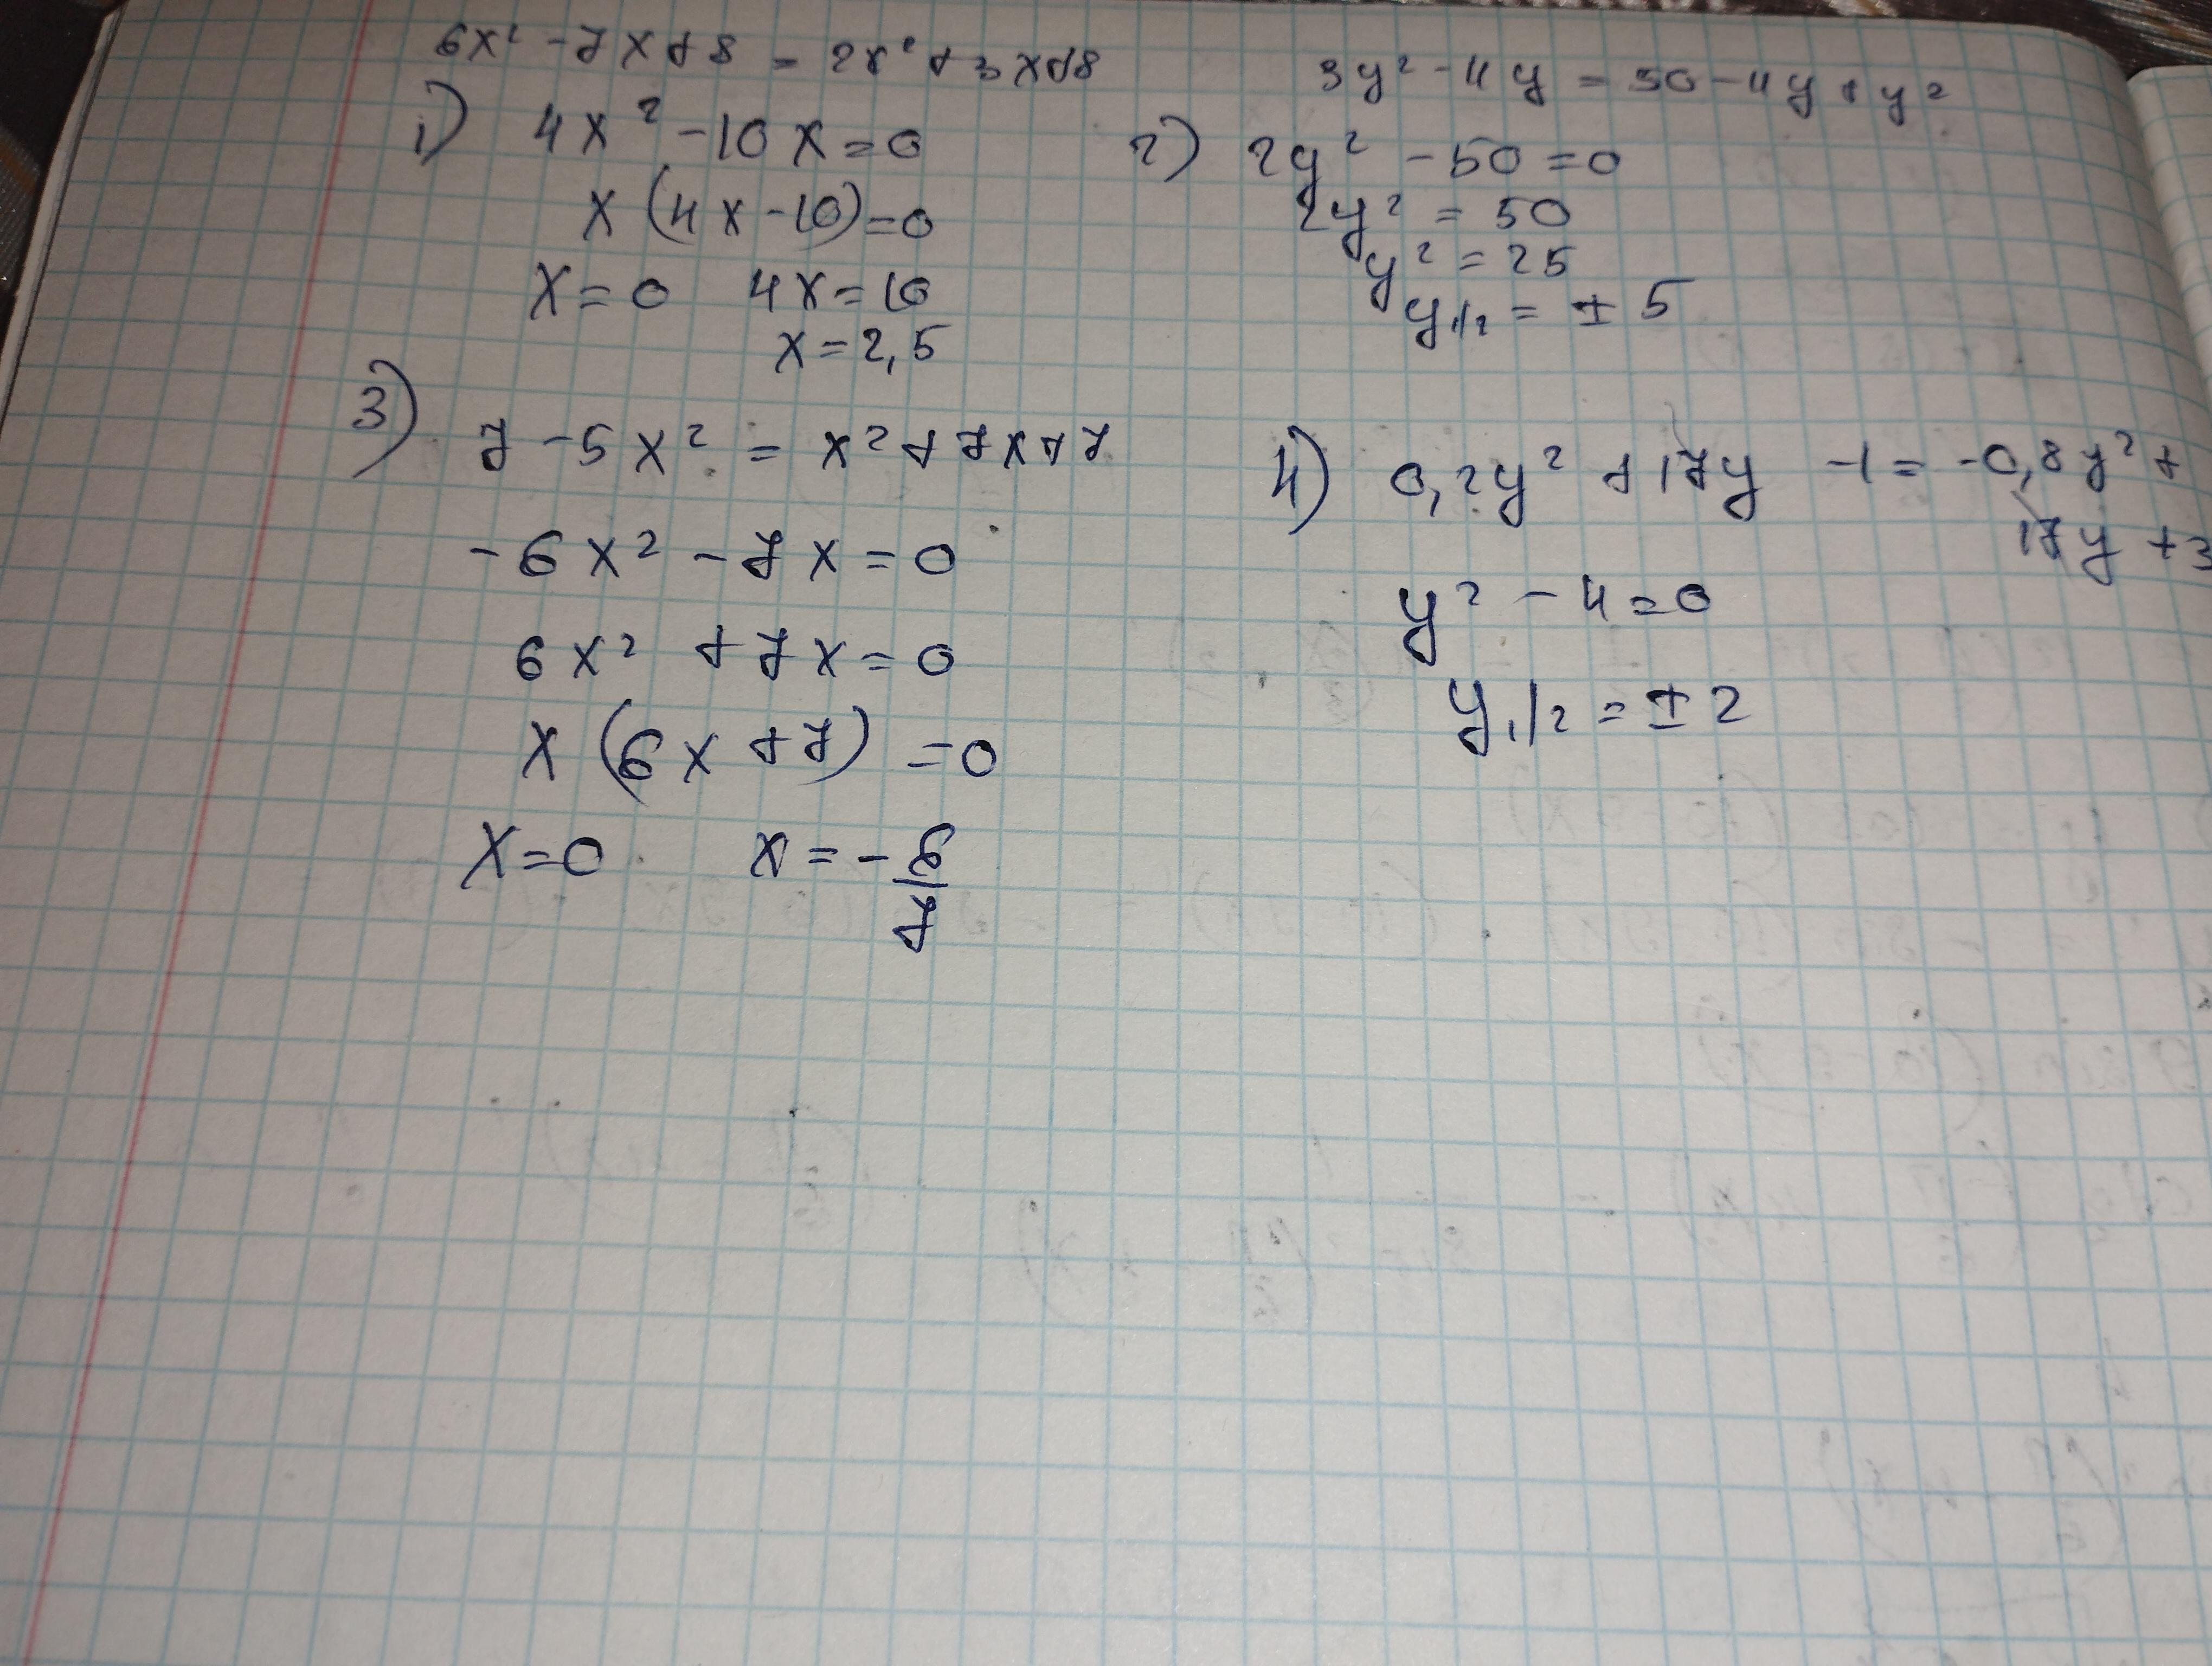 6x² - 7x + 8 = 2x² + 3x + 8
1) 4x² - 10x = 0
x (4x - 10) = 0
x = 0 4x = 10
x = 2,5
3y² - 4y = 50 - 4y + y²
2) 2y² - 50 = 0
2y² = 50
y² = 25
y₁/₂ = ± 5
3) 7 - 5x² = x² + 7x + 7
-6x² - 7x = 0
6x² + 7x = 0
x (6x + 7) = 0
x = 0 x = -6/7
4) 0,2y² + 17y - 1 = -0,8y² +
17y + 3
y² - 4 = 0
y₁/₂ = ± 2